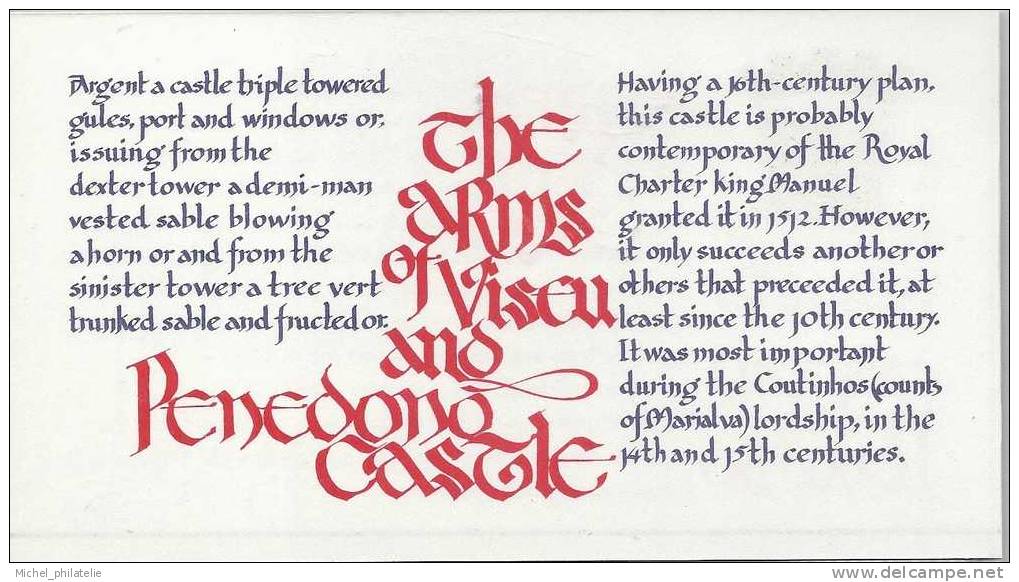 Argent a castle triple towered
gules, port and windows or,
issuing from the
dexter tower a demi-man
vested sable blowing
a horn or and from the
sinister tower a tree vert
trunked sable and fructed or.
The
arms
of Viseu
and
Penedono
Castle
Having a 16th-century plan,
this castle is probably
contemporary of the Royal
Charter king Manuel
granted it in 1512. However,
it only succeeds another or
others that preceeded it, at
least since the 10th century.
It was most important
during the Coutinhos (counts
of Marialva) lordship, in the
14th and 15th centuries.
Michel_philatelie
delcampe.net